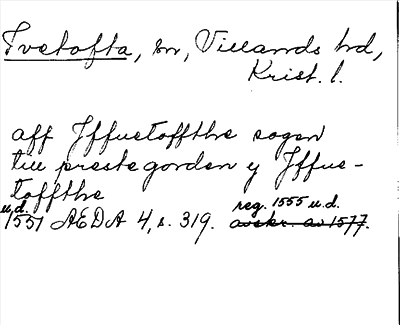 Ivetofta, sn, Villands hd,
Krist. l.
aff Jffuetoffthe sogen
till prestegorden y Jffue-
toffthe
u.d.
1551 AEDA 4, s. 319. reg. 1555 u.d.
avskr. av 1577.